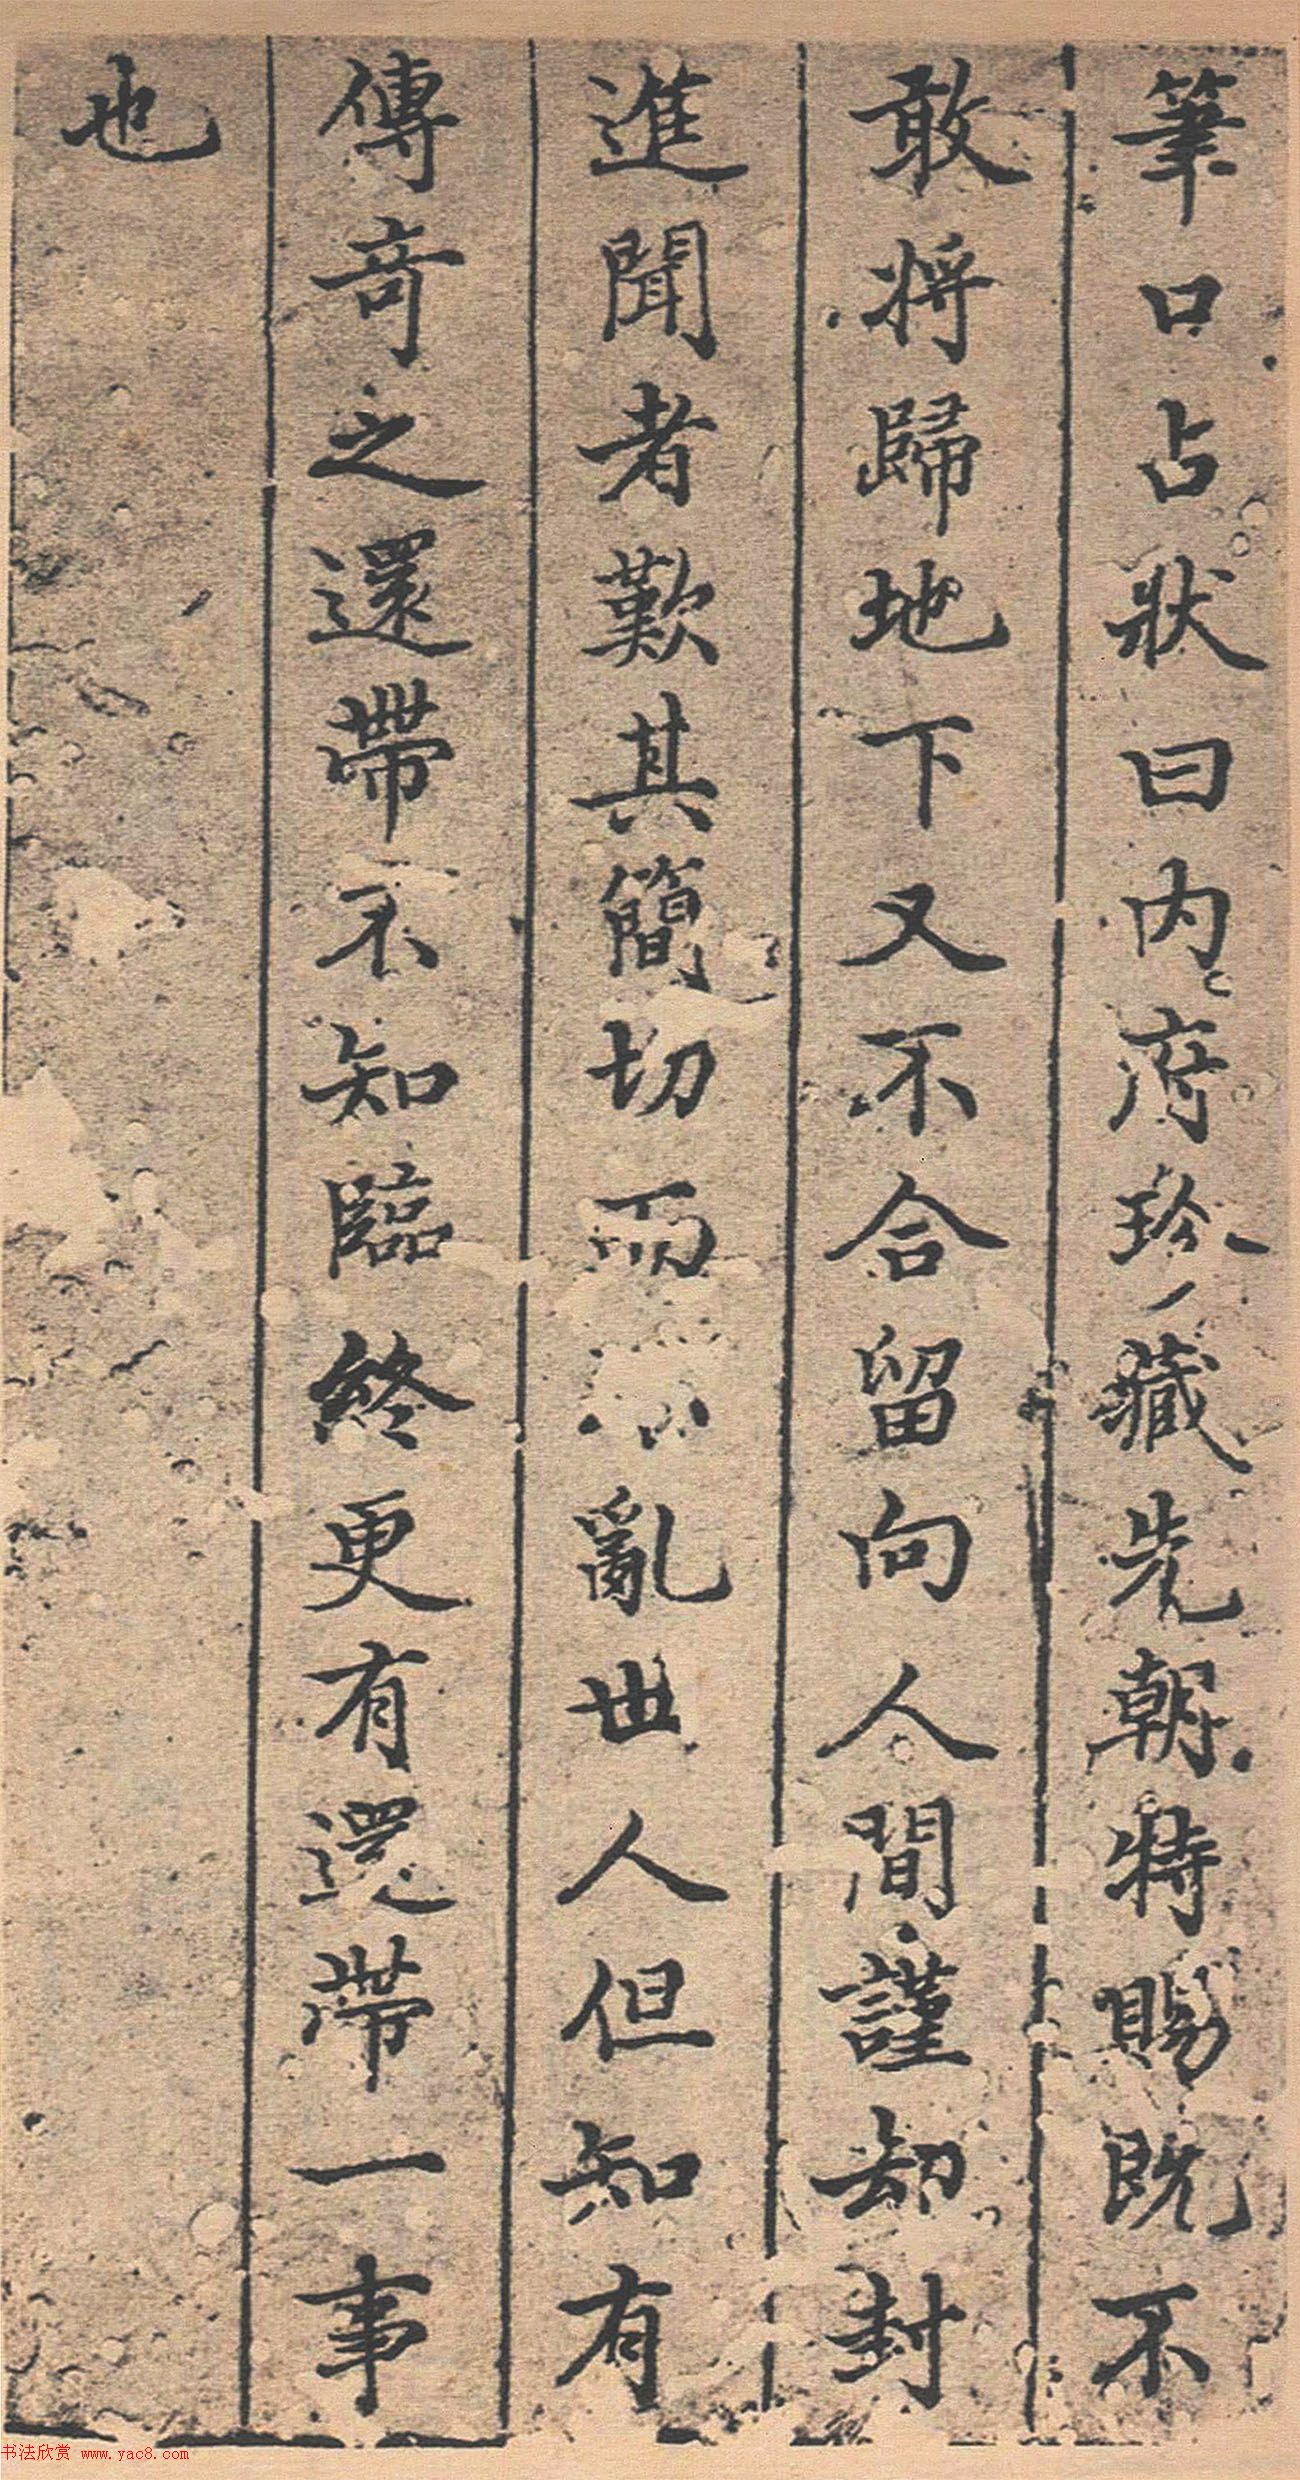 筆口占狀曰内府珍藏先朝特賜既不
敢將歸地下又不合留向人間謹却封
進聞者歎其簡切而不亂世人但知有
傳奇之還帶不知臨終更有還帶一事
也
书法欣赏 www.yac8.com